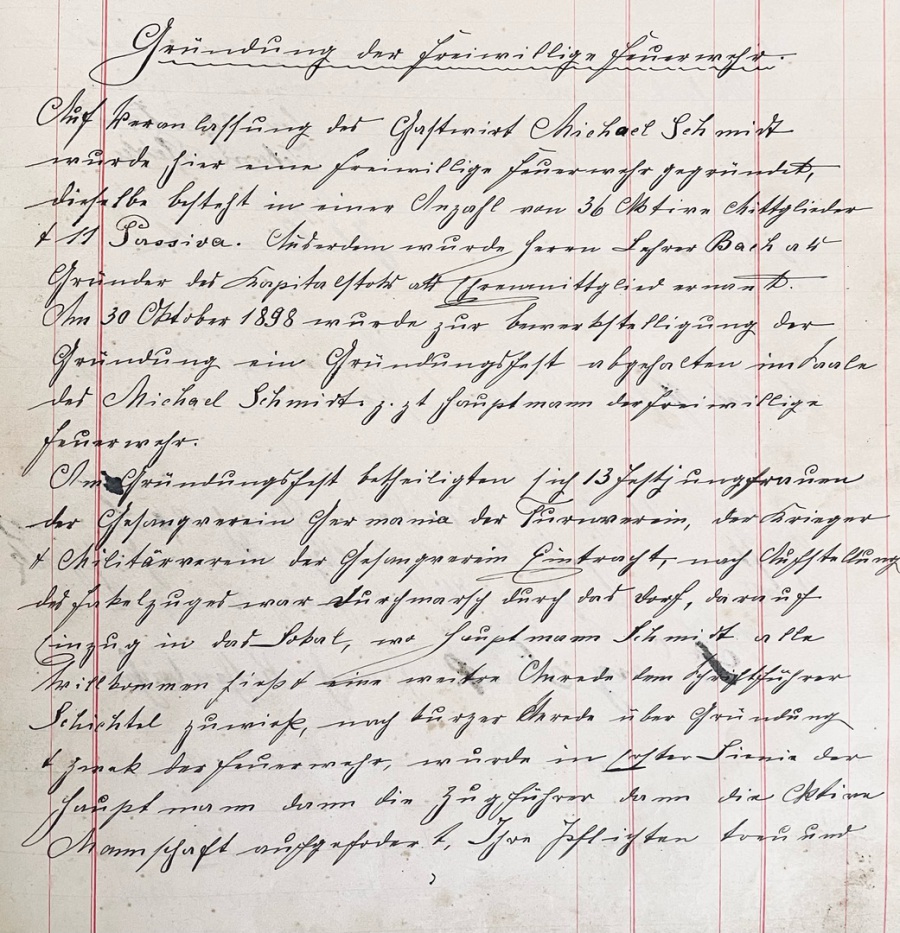 Gründung der Freiwillige Feuerwehr.
Auf Veranlassung des Gastwirt Michael Schmidt
wurde hier eine Freiwillige Feuerwehr gegründet,
dieselbe besteht in einer Anzahl von 36 Aktive Mittglieder
& 11 Passiva. Auserdem wurde Herrn Lehrer Bach als
Gründer des Kapitalstoks als Ehrenmittglied ernant.
Am 30 Oktober 1898 wurde zur bewerkstelligung der
Gründung ein Gründungsfest abgehalten im Saale
des Michael Schmidt z. zt Hauptmann der Freiwillige
Feuerwehr.
Am Gründungsfest betheiligten sich 13 Festjungfrauen
der Gesangverein Germania der Turnverein, der Krieger
& Militärverein der Gesangverein Eintracht, nach Aufstellung
des Fakelzuges war Durchmarsch durch das Dorf, darauf
Einzug in das Lokal, wo Hauptmann Schmidt alle
Willkommen hieß & eine weitre Anrede dem Schriftführer
Schichtel zuwieß, nach kurzer Anrede über Gründung
& zwek der Feuerwehr, wurde in erster Linie der
Hauptmann dann die Zugführer dann die Aktive
Mannschaft aufgefordert, Ihre Pflichten treu und